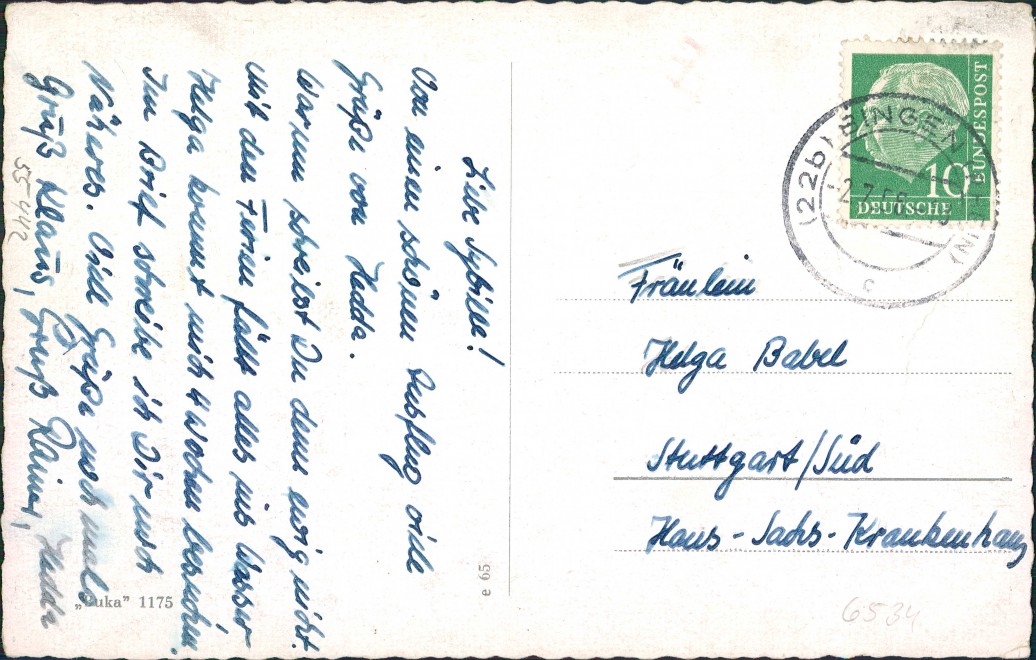 Liebe Sybille!
Von einem schönen Ausflug viele
Grüße von Hedda.
Warum schreibst Du denn ewig nicht.
Mit den Ferien fällt alles ins Wasser
Helga kommt mich 4 Wochen besuchen.
Im Brief schreibe ich Dir noch
Näheres. Viele Grüße noch mals
Gruß Klaus, Gruß Rainer, Hedda
55 442
"Cuka" 1175
e 65
(22b) BINGEN (RHEIN)
-2.7.
c
10
DEUTSCHE
BUNDESPOST
Fräulein
Helga Babel
Stuttgart/Süd
Hans-Sachs-Krankenhaus
6534